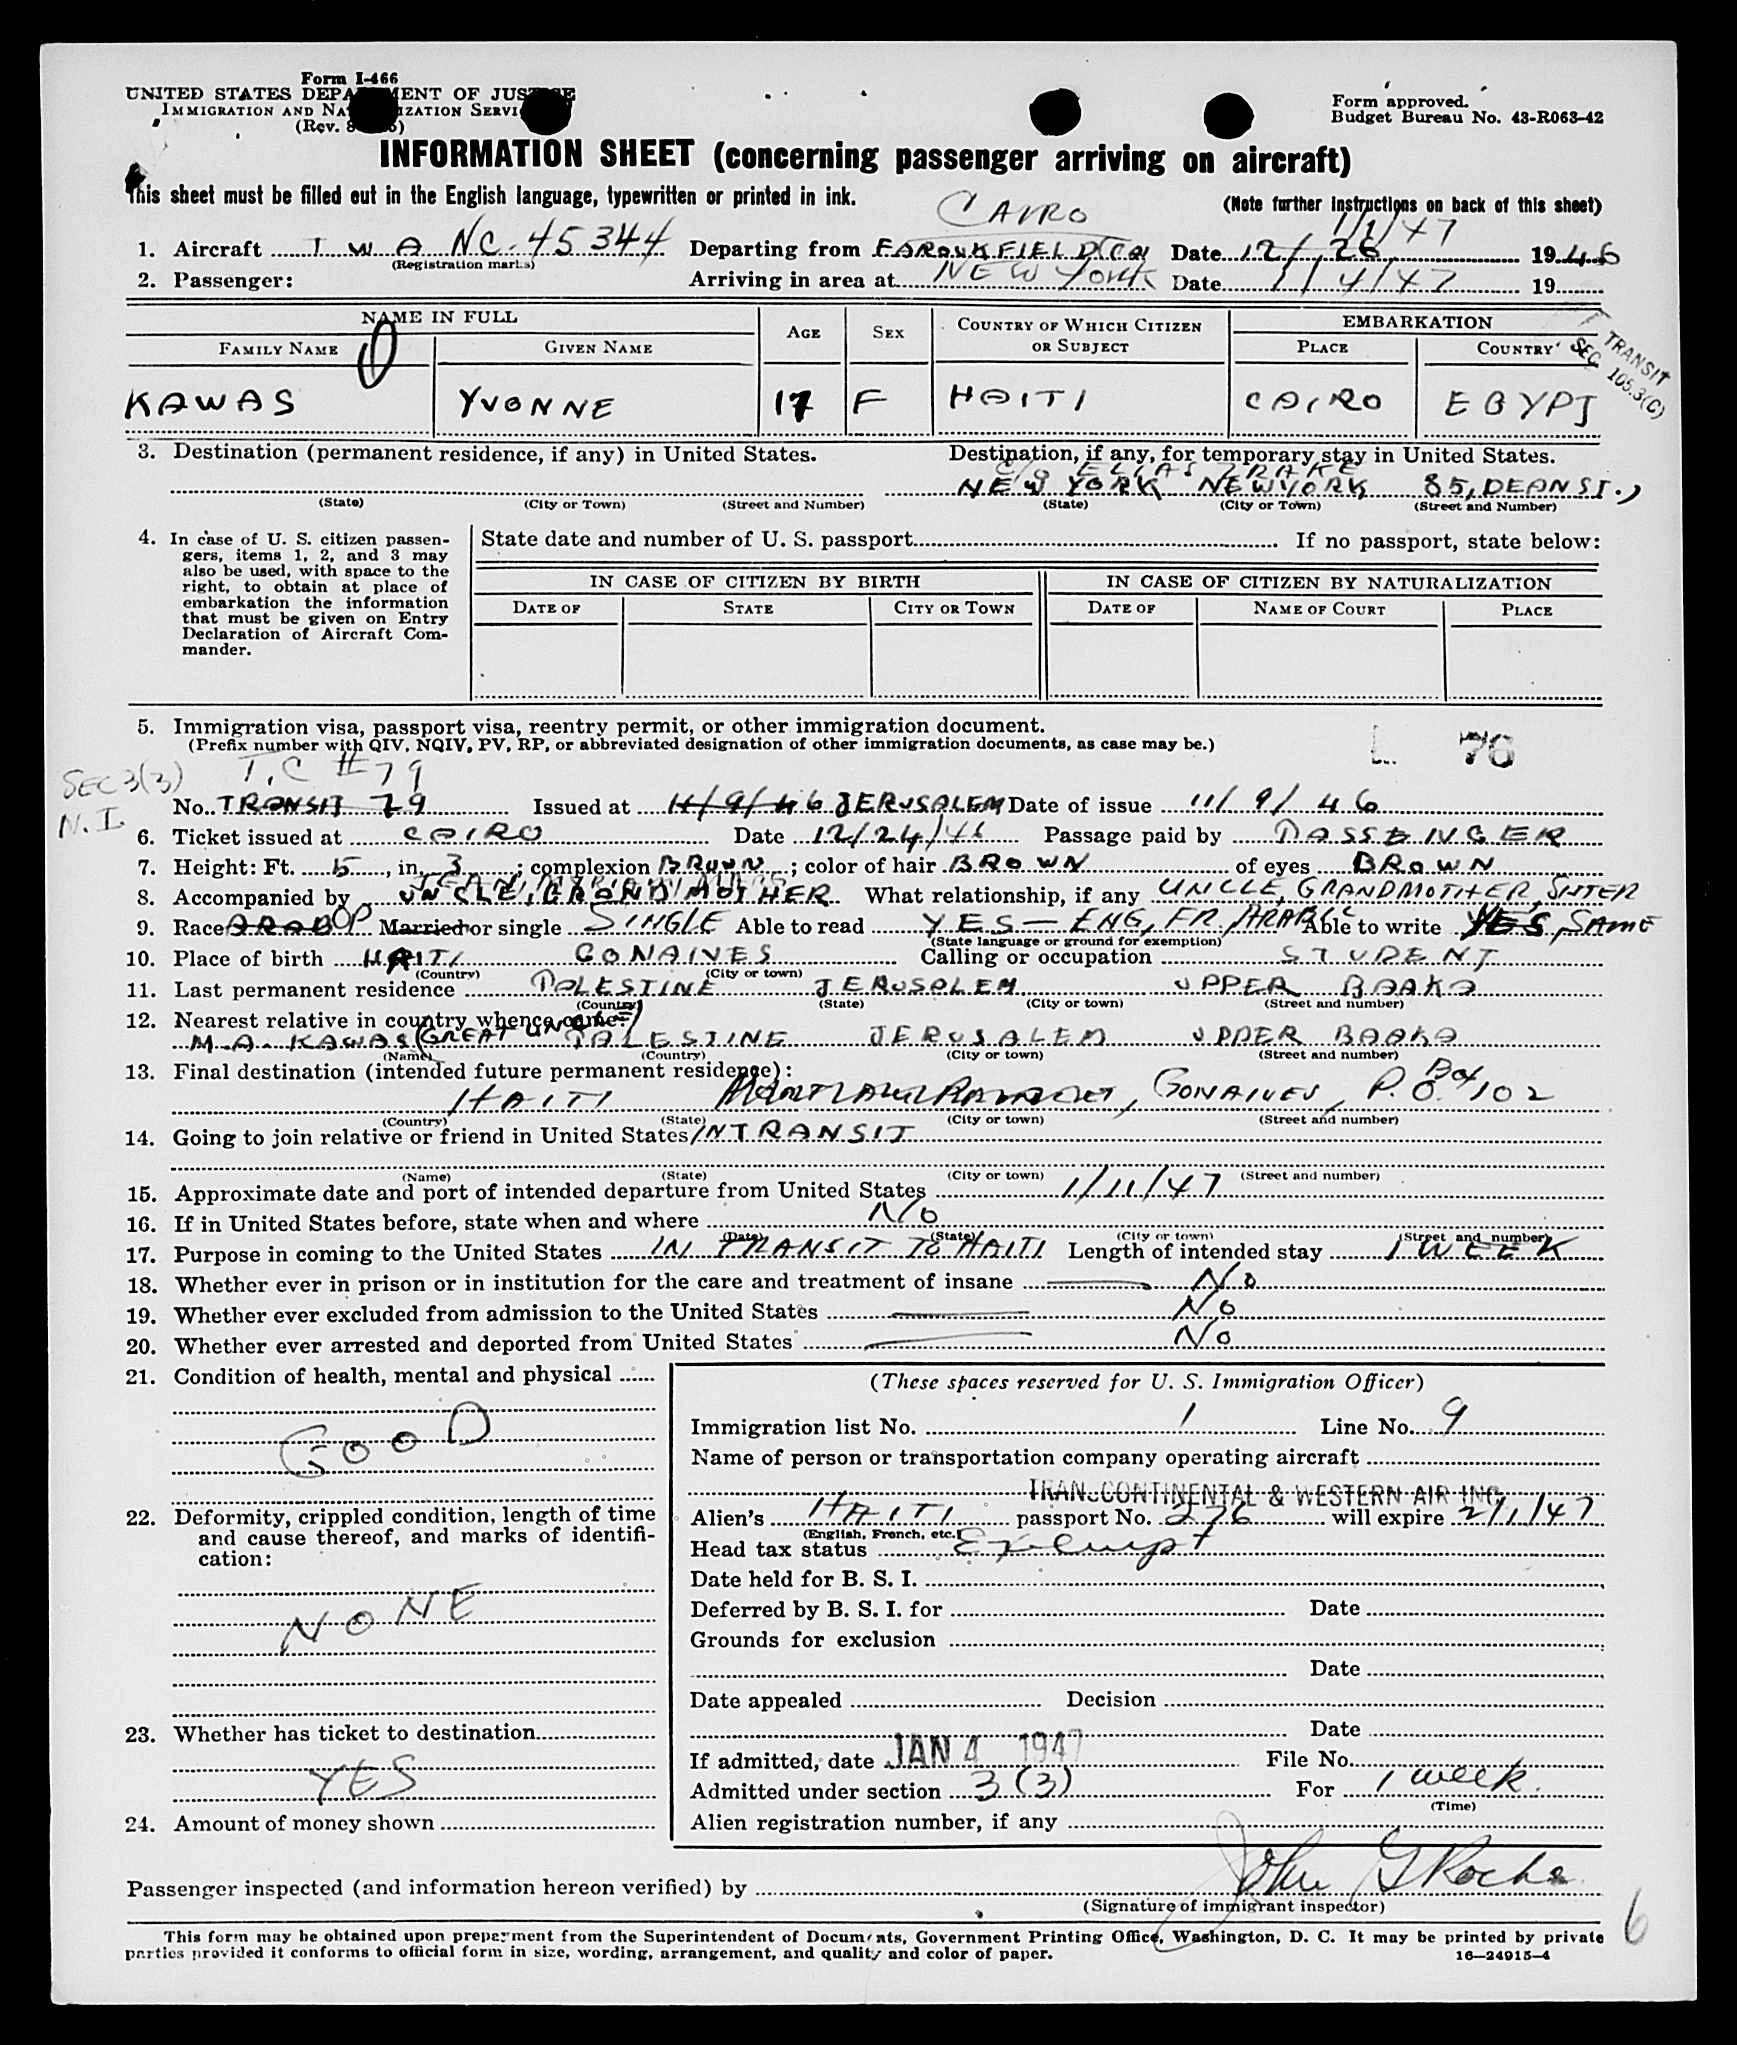 Form I-466
UNITED STATES DEPARTMENT OF JUSTICE
IMMIGRATION AND NATURALIZATION SERVICE
(Rev.
Form approved.
Budget Bureau No. 43-R063-42
INFORMATION SHEET (concerning passenger arriving on aircraft)
This sheet must be filled out in the English language, typewritten or printed in ink.
(Note further instructions on back of this sheet)
CAIRO 1/1/47
1. Aircraft T W A NC. 45344 Departing from FAROUK FIELD Date 12/26, 1946
(Registration marks)
2. Passenger: Arriving in area at NEW YORK Date 1/4/47 19
NAME IN FULL AGE SEX COUNTRY OF WHICH CITIZEN OR SUBJECT EMBARKATION
FAMILY NAME GIVEN NAME PLACE COUNTRY
TRANSIT
SEC. 105.3(C)
KAWAS YVONNE 17 F HAITI CAIRO EGYPT
3. Destination (permanent residence, if any) in United States. Destination, if any, for temporary stay in United States.
c/o ELIAS
NEW YORK NEW YORK 85, DEAN ST.,
(State) (City or Town) (Street and Number) (State) (City or Town) (Street and Number)
4. In case of U. S. citizen passengers, items 1, 2, and 3 may also be used, with space to the right, to obtain at place of embarkation the information that must be given on Entry Declaration of Aircraft Commander.
State date and number of U. S. passport If no passport, state below:
IN CASE OF CITIZEN BY BIRTH IN CASE OF CITIZEN BY NATURALIZATION
DATE OF STATE CITY OR TOWN DATE OF NAME OF COURT PLACE
5. Immigration visa, passport visa, reentry permit, or other immigration document.
(Prefix number with QIV, NQIV, PV, RP, or abbreviated designation of other immigration documents, as case may be.)
76
SEC 3(3)
N.I.
T.C #79
No. TRANSIT 79 Issued at 11/9/46 JERUSALEM Date of issue 11/9/46
6. Ticket issued at CAIRO Date 12/24/46 Passage paid by PASSENGER
7. Height: Ft. 5, in. 3; complexion BROWN; color of hair BROWN of eyes BROWN
8. Accompanied by UNCLE, GRANDMOTHER What relationship, if any UNCLE, GRANDMOTHER, SISTER
9. Race ARAB Married or single SINGLE Able to read YES — ENG, FR, ARABIC Able to write YES, SAME
(State language or ground for exemption)
10. Place of birth HAITI GONAIVES Calling or occupation STUDENT
(Country) (City or town)
11. Last permanent residence PALESTINE JERUSALEM UPPER BAAKA
(Country) (State) (City or town) (Street and number)
12. Nearest relative in country whence came:
M.A. KAWAS (GREAT UNCLE) PALESTINE JERUSALEM UPPER BAAKA
(Name) (Country) (City or town) (Street and number)
13. Final destination (intended future permanent residence):
HAITI GONAIVES, P.O. Box 102
(Country) (State) (City or town) (Street and number)
14. Going to join relative or friend in United States IN TRANSIT
(Name) (State) (City or town) (Street and number)
15. Approximate date and port of intended departure from United States 1/11/47
16. If in United States before, state when and where NO
(Date) (State) (City or town) (Street and number)
17. Purpose in coming to the United States IN TRANSIT TO HAITI Length of intended stay 1 WEEK
18. Whether ever in prison or in institution for the care and treatment of insane No
19. Whether ever excluded from admission to the United States No
20. Whether ever arrested and deported from United States No
21. Condition of health, mental and physical
GOOD
22. Deformity, crippled condition, length of time and cause thereof, and marks of identification:
NONE
23. Whether has ticket to destination
YES
24. Amount of money shown
(These spaces reserved for U. S. Immigration Officer)
Immigration list No. 1 Line No. 9
Name of person or transportation company operating aircraft
TRANSCONTINENTAL & WESTERN AIR INC.
Alien's HAITI passport No. 276 will expire 2/1/47
(English, French, etc.)
Head tax status Exempt
Date held for B. S. I.
Deferred by B. S. I. for Date
Grounds for exclusion
Date
Date appealed Decision
Date
If admitted, date JAN 4 1947 File No.
Admitted under section 3(3) For 1 week.
(Time)
Alien registration number, if any
Passenger inspected (and information hereon verified) by John G Roche
(Signature of immigrant inspector)
6
This form may be obtained upon prepayment from the Superintendent of Documents, Government Printing Office, Washington, D. C. It may be printed by private
parties provided it conforms to official form in size, wording, arrangement, and quality and color of paper. 16—24915-4